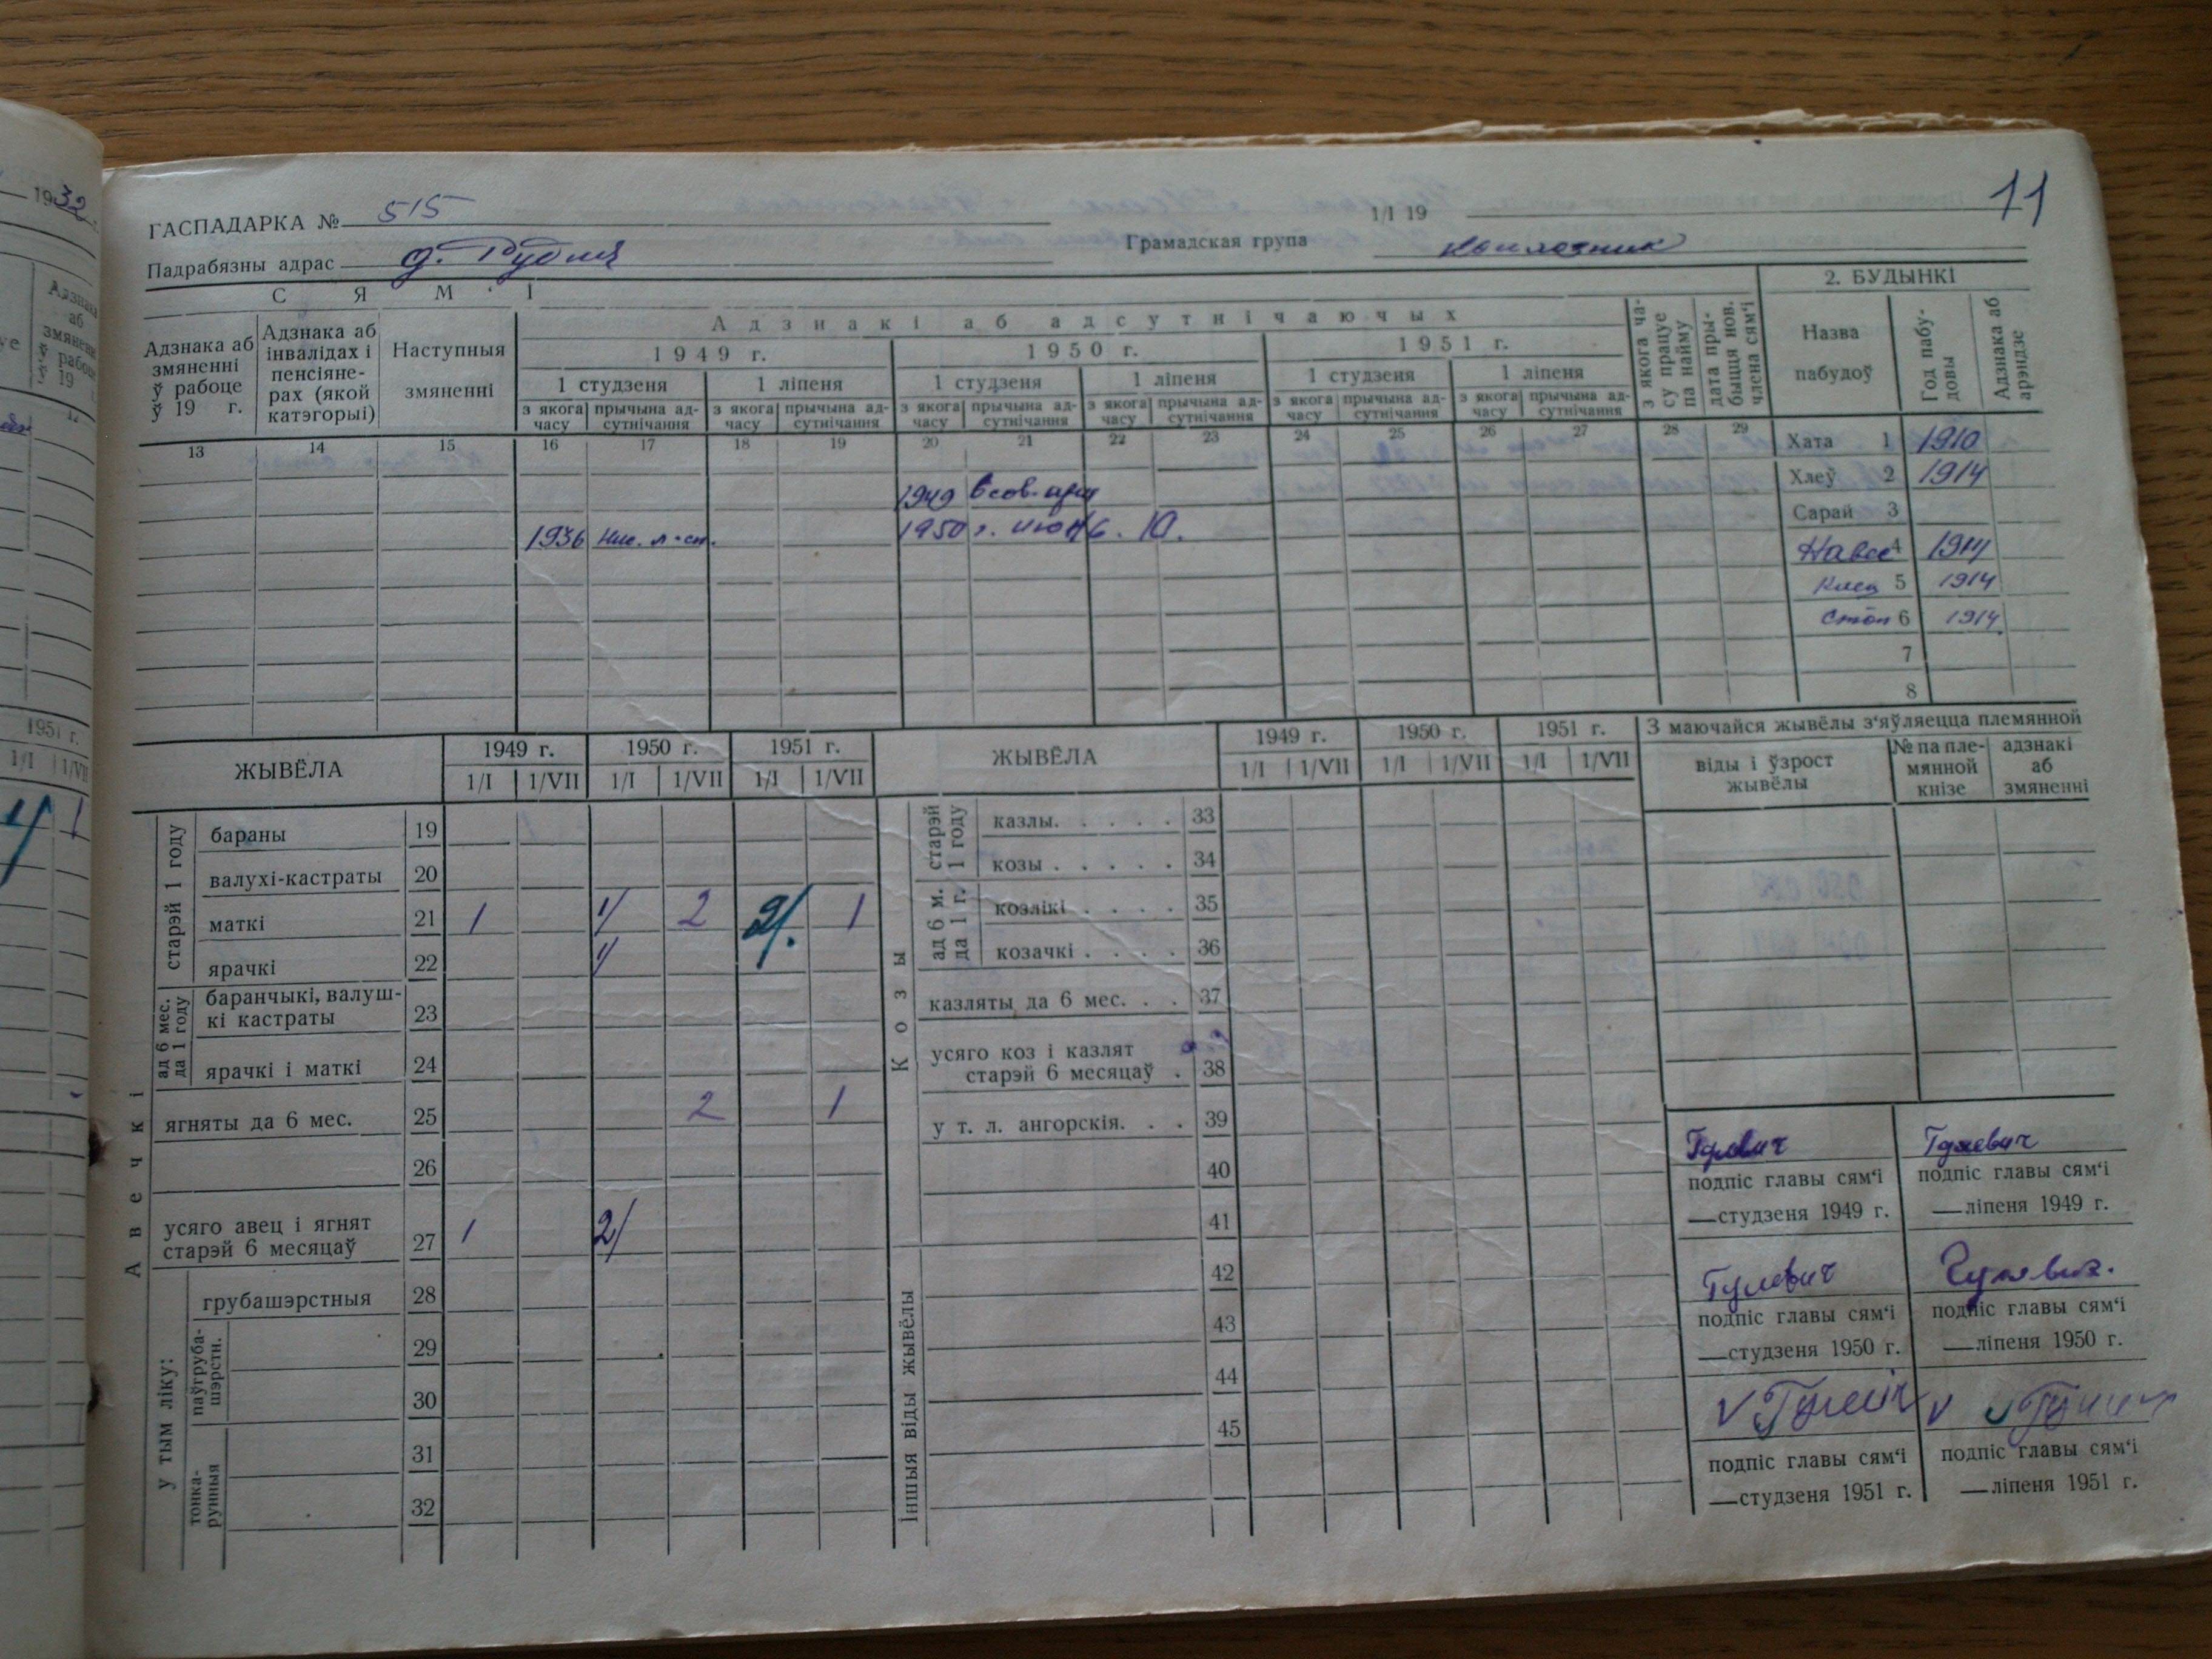 1932
11
ГАСПАДАРКА № 515
1/I 19
Падрабязны адрас д. Рубля
Грамадская група колхозник
СЯМ‘І
2. БУДЫНКІ
Адзнака аб змяненні ў рабоце ў 19 г.
Адзнака аб інвалідах і пенсіяне-рах (якой катэгорыі)
Наступныя змяненні
Адзнакі аб адсутнічаючых
1949 г.
1950 г.
1951 г.
1 студзеня
1 ліпеня
1 студзеня
1 ліпеня
1 студзеня
1 ліпеня
з якога часу
прычына ад-сутнічання
з якога часу
прычына ад-сутнічання
з якога часу
прычына ад-сутнічання
з якога часу
прычына ад-сутнічання
з якога часу
прычына ад-сутнічання
з якога часу
прычына ад-сутнічання
з якога ча-су працуе па найму
дата пры-быцця нов. члена сям‘і
Назва пабудоў
Год пабу-довы
Адзнака аб арэндзе
13 14 15 16 17 18 19 20 21 22 23 24 25 26 27 28 29
Хата 1 1910
Хлеў 2 1914
Сарай 3
Навес 4 1914
Клец 5 1914
Стоп 6 1914
7
8
1949 в сов. арм
1936
1950 г.
ЖЫВЁЛА
1949 г.
1950 г.
1951 г.
1/I 1/VII 1/I 1/VII 1/I 1/VII
Авечкі
старэй 1 году
бараны 19
валухі-кастраты 20
маткі 21 1 1/ 2 2/. 1
ярачкі 22 1/
ад 6 мес. да 1 году
баранчыкі, валуш-кі кастраты 23
ярачкі і маткі 24
ягняты да 6 мес. 25 2 1
26
усяго авец і ягнят старэй 6 месяцаў 27 1 2/
у тым ліку:
грубашэрстныя 28
паўгруба-шэрстн.
29
30
тонка-рунныя
31
32
ЖЫВЁЛА
1949 г.
1950 г.
1951 г.
1/I 1/VII 1/I 1/VII 1/I 1/VII
Козы
старэй 1 году
казлы. . . . . 33
козы . . . . . 34
ад 6 м. да 1 г.
козлікі . . . . 35
козачкі . . . . 36
казляты да 6 мес. . . 37
усяго коз і казлят старэй 6 месяцаў . 38
у т. л. ангорскія. . . 39
40
41
Іншыя віды жывёлы
42
43
44
45
З маючайся жывёлы з‘яўляецца племянной
віды і ўзрост жывёлы
№ па пле-мянной кнізе
адзнакі аб змяненні
Гулевич
подпіс главы сям‘і
—студзеня 1949 г.
Гулевич
подпіс главы сям‘і
—ліпеня 1949 г.
Гулевич
подпіс главы сям‘і
—студзеня 1950 г.
Гулевич.
подпіс главы сям‘і
—ліпеня 1950 г.
подпіс главы сям‘і
—студзеня 1951 г.
подпіс главы сям‘і
—ліпеня 1951 г.